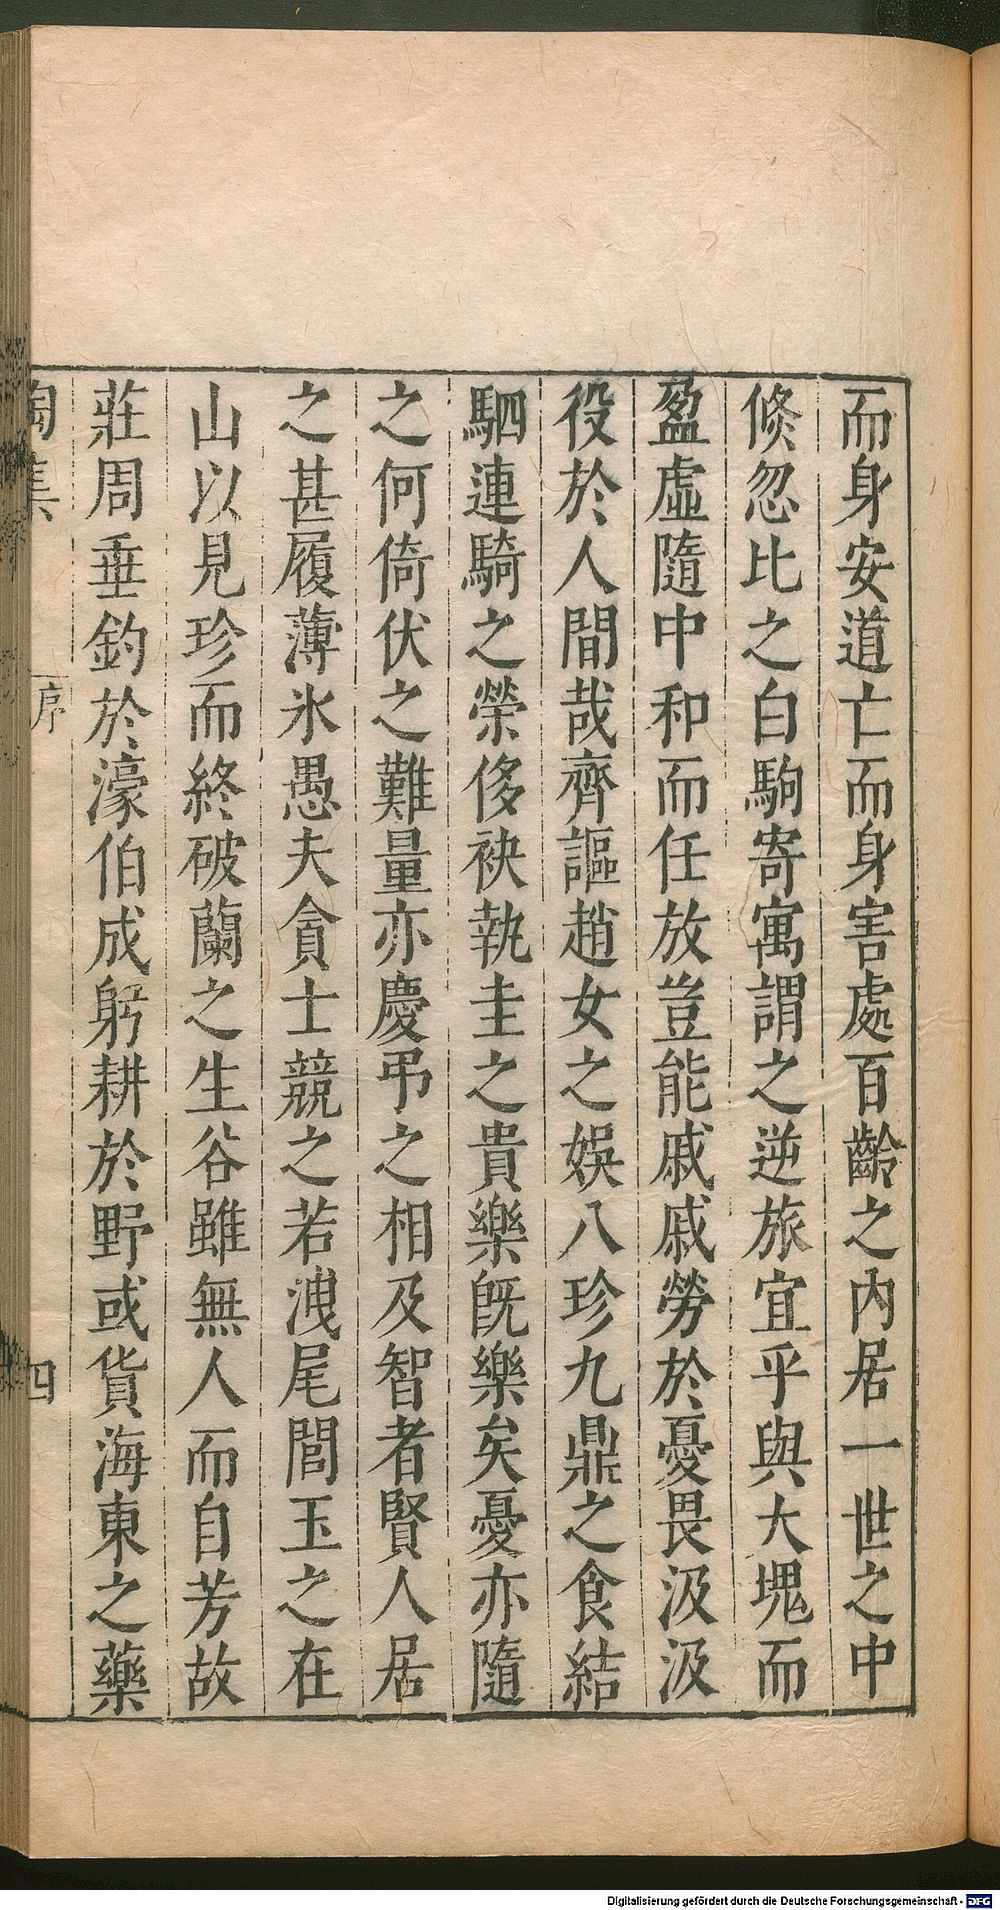 而身安道亡而身害處百齡之內居一世之中
倐忽比之白駒寄寓謂之逆旅宜乎與大塊而
盈虛隨中和而任放豈能戚戚勞於憂畏汲汲
役於人間哉齊謳趙女之娛八珍九鼎之食結
駟連騎之榮侈袂執圭之貴樂旣樂矣憂亦隨
之何倚伏之難量亦慶弔之相及智者賢人居
之甚履薄氷愚夫貪士競之若洩尾閭玉之在
山以見珍而終破蘭之生谷雖無人而自芳故
莊周垂釣於濠伯成躬耕於野或貨海東之藥
陶集 序 四
Digitalisierung gefördert durch die Deutsche Forschungsgemeinschaft - DFG